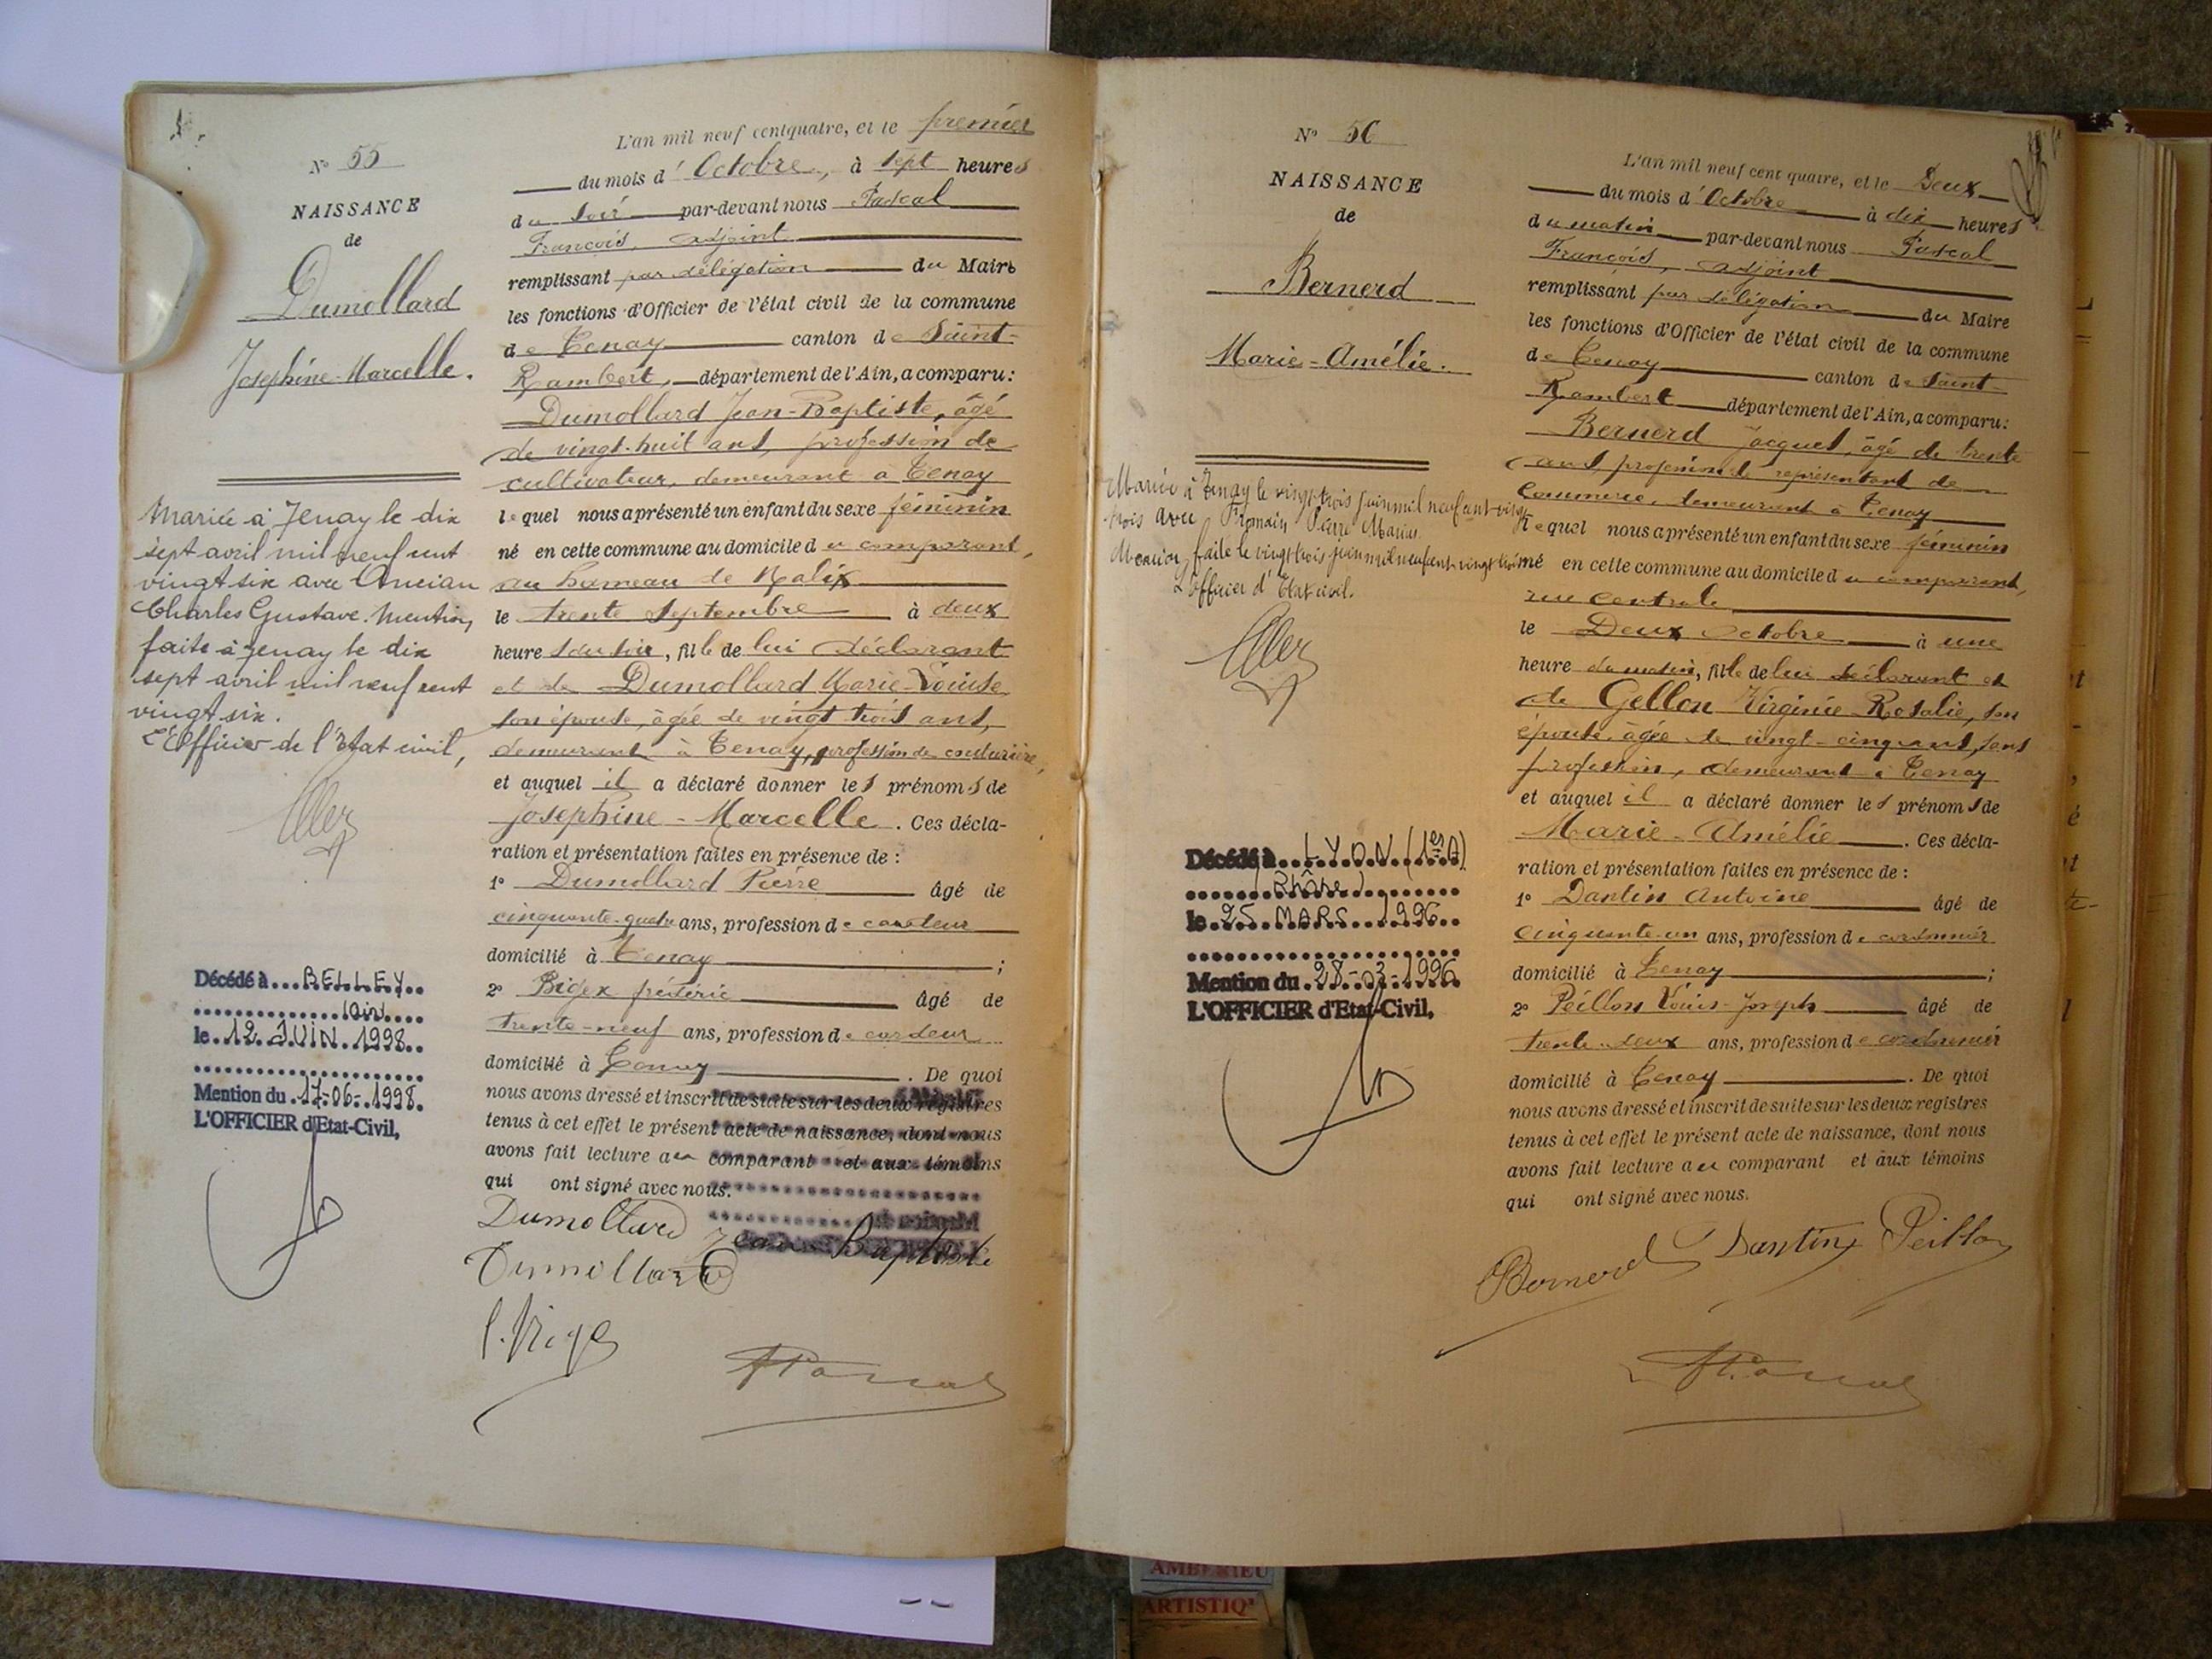 N° 55
NAISSANCE
de
Dumollard
Josephine-Marcelle.
Mariée à Tenay le dix
sept avril mil neuf cent
vingt six avec Ancian
Charles Gustave. Mention
faite à Tenay le dix
sept avril mil neuf cent
vingt six.
L'Officier de l'Etat civil,
Décédé à BELLEY
(Ain)
le 12 JUIN 1998
Mention du 17-06-1998
L'OFFICIER d'Etat-Civil,
L'an mil neuf cent quatre, et le premier
du mois d'Octobre, à sept heures
du soir par-devant nous Pascal
François, adjoint
remplissant par délégation du Maire
les fonctions d'Officier de l'état civil de la commune
de Tenay canton de Saint-
Rambert, département de l'Ain, a comparu:
Dumollard Jean-Baptiste, âgé
de vingt-huit ans, profession de
cultivateur, demeurant à Tenay
lequel nous a présenté un enfant du sexe féminin
né en cette commune au domicile du comparant,
au hameau de Malix
le trente Septembre à deux
heures du soir, fille de lui déclarant
et de Dumollard Marie-Louise
son épouse, âgée de vingt trois ans,
demeurant à Tenay, profession de couturière,
et auquel il a déclaré donner les prénoms de
Josephine-Marcelle. Ces décla-
ration et présentation faites en présence de :
1° Dumollard Pierre âgé de
cinquante-quatre ans, profession de
domicilié à Tenay ;
2° Bigex frédéric âgé de
trente-neuf ans, profession de cardeur
domicilié à Tenay. De quoi
nous avons dressé et inscrit de suite sur les deux registres
tenus à cet effet le présent acte de naissance, dont nous
avons fait lecture au comparant et aux témoins
qui ont signé avec nous.
Dumollard Jean Baptiste
Dumollard
N° 56
NAISSANCE
de
Bernerd
Marie-Amélie.
Mariée à Tenay le vingt trois juin mil neuf cent vingt
trois avec Romain Pierre Marius
Mention faite le vingt trois juin mil neuf cent vingt trois
L'Officier d'Etat civil.
Décédé à LYON (1er A)
(Rhône)
le 25 MARS 1996
Mention du 28-03-1996
L'OFFICIER d'Etat-Civil,
L'an mil neuf cent quatre, et le Deux
du mois d'Octobre à dix heures
du matin par-devant nous Pascal
François, adjoint
remplissant par délégation du Maire
les fonctions d'Officier de l'état civil de la commune
de Tenay canton de Saint-
Rambert département de l'Ain, a comparu:
Bernerd Jacques, âgé de trente
ans, profession de représentant de
Commerce, demeurant à Tenay
lequel nous a présenté un enfant du sexe féminin
né en cette commune au domicile du comparant,
rue centrale
le Deux Octobre à une
heure du matin, fille de lui déclarant et
de Gellon Virginie Rosalie, son
épouse, âgée de vingt-cinq ans, sans
profession, demeurant à Tenay
et auquel il a déclaré donner les prénoms de
Marie-Amélie. Ces décla-
ration et présentation faites en présence de :
1° Dantin Antoine âgé de
cinquante-un ans, profession de cordonnier
domicilié à Tenay ;
2° Peillon Louis-Joseph âgé de
trente-deux ans, profession de cordonnier
domicilié à Tenay. De quoi
nous avons dressé et inscrit de suite sur les deux registres
tenus à cet effet le présent acte de naissance, dont nous
avons fait lecture au comparant et aux témoins
qui ont signé avec nous.
Bernerd Dantin Peillon
AMBERIEU
ARTISTIQ